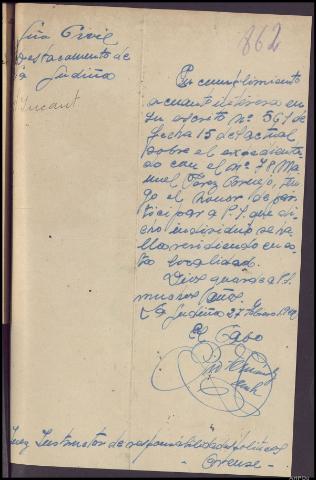 862
Civil
Destacamento de
la Gudiña
En cumplimiento
a cuanto interesa en
su escrito nº 561 de
fecha 15 del actual
sobre el expedienta-
do con el nº 78 Ma-
nuel Perez Cornejo, ten-
go el honor de par-
ticipar a V.S. que di-
cho individuo se ha-
lla residiendo en es-
ta localidad.
Dios guarde a V.S.
muchos años.
La Gudiña 27 Febrero
El Cabo
Juez Instructor de responsabilidades políticas
- Orense -